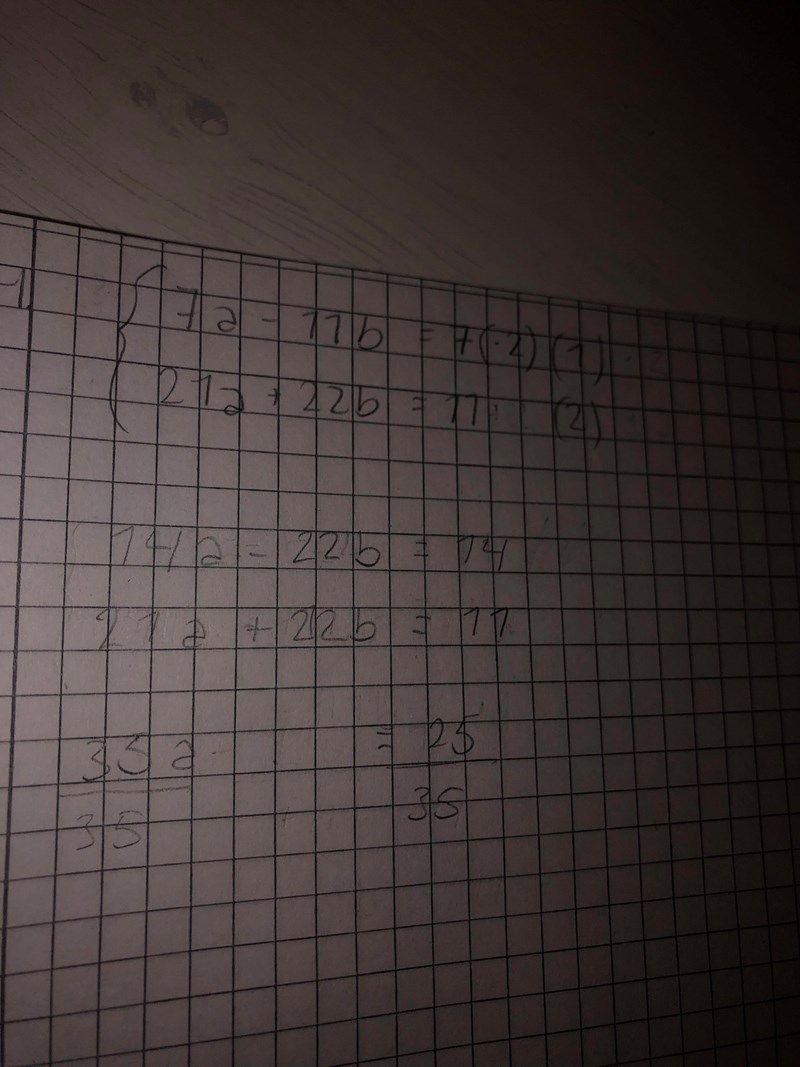 7a - 11b = 7(·2) (1)
21a + 22b = 11 (2)
14a - 22b = 14
21a + 22b = 11
35a = 25
35 35